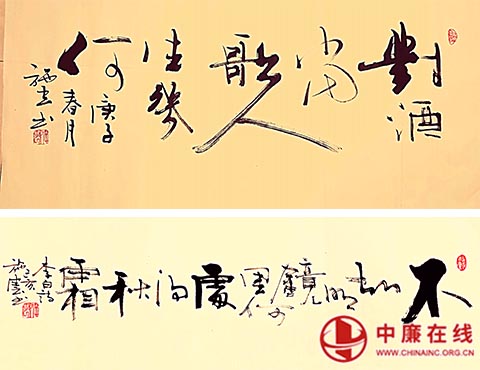 對酒當歌人生幾何
庚子
春月
不知明鏡里何處得秋霜
李白詩
中廉在线
WWW.CHINAINC.ORG.CN